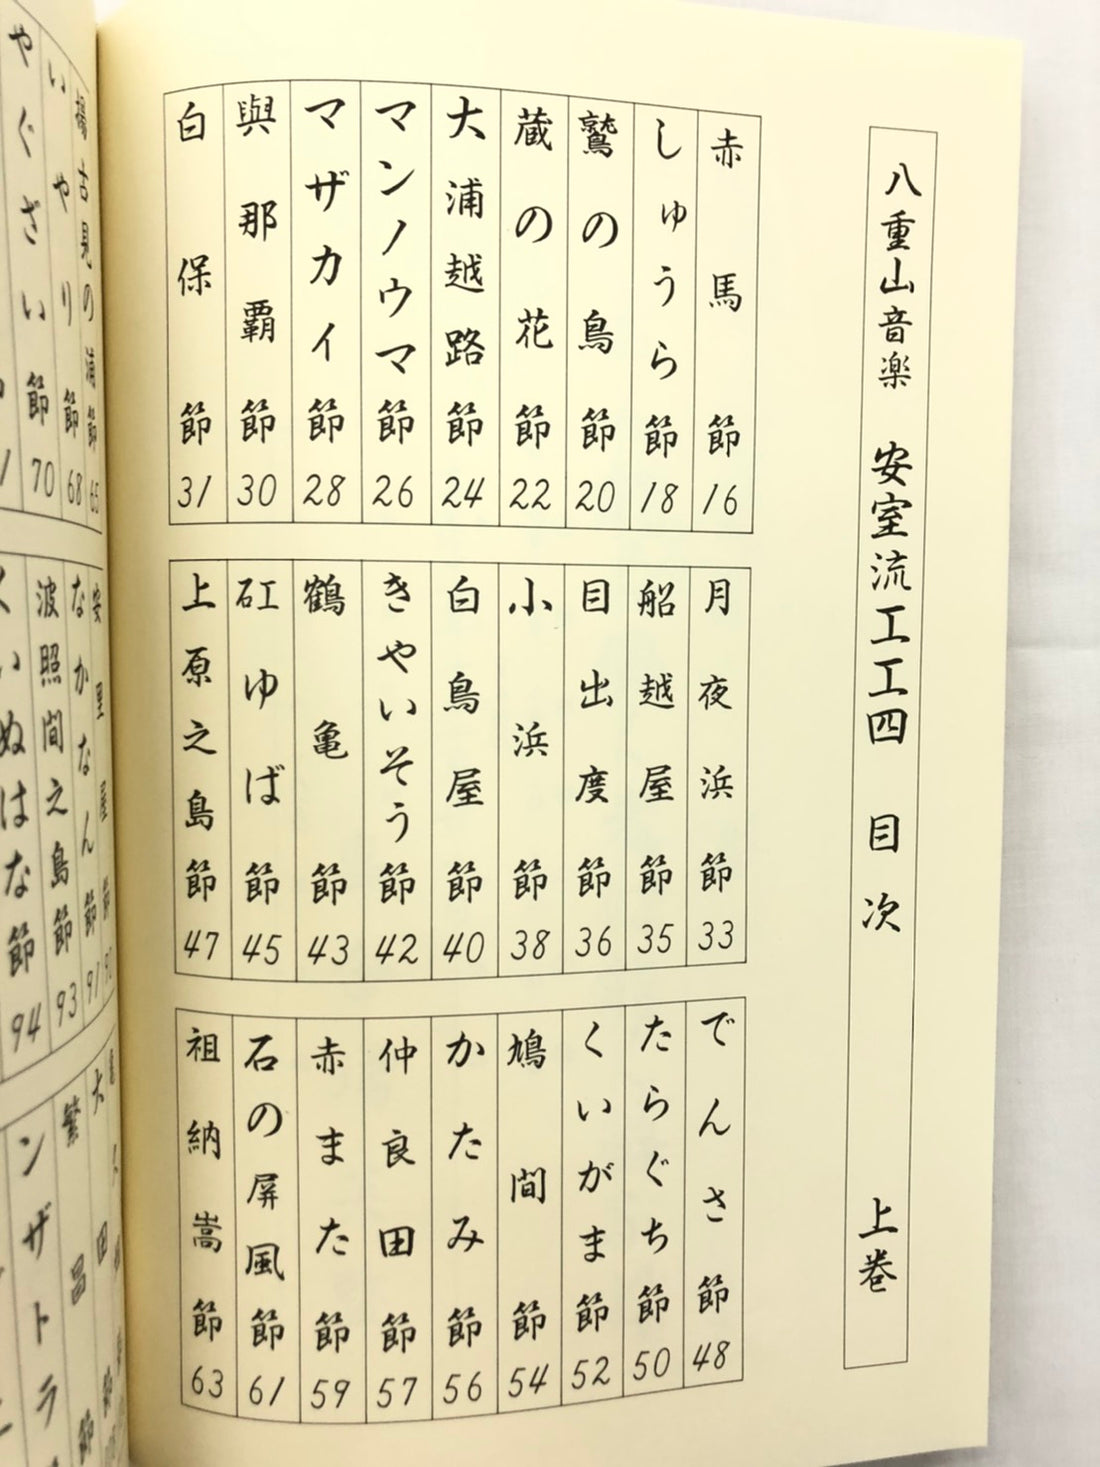 八重山音楽 安室流工工四 目次 上巻
赤馬節 16
しゅうら節 18
鷲の鳥節 20
蔵の花節 22
大浦越路節 24
マンノウマ節 26
マザカイ節 28
與那覇節 30
白保節 31
月夜浜節 33
船越屋節 35
目出度節 36
小浜節 38
白鳥屋節 40
きやいそう節 42
鶴亀節 43
矼ゆば節 45
上原之島節 47
でんさ節 48
たらぐち節 50
くいがま節 52
鳩間節 54
かたみ節 56
仲良田節 57
赤また節 59
石の屏風節 61
祖納嵩節 63
古見の浦節 65
いやり節 68
やぐざい節 70
安里屋節
なかなん節 91
波照間之島節 93
いぬはな節 94
大田
繁昌節
ンザトラ